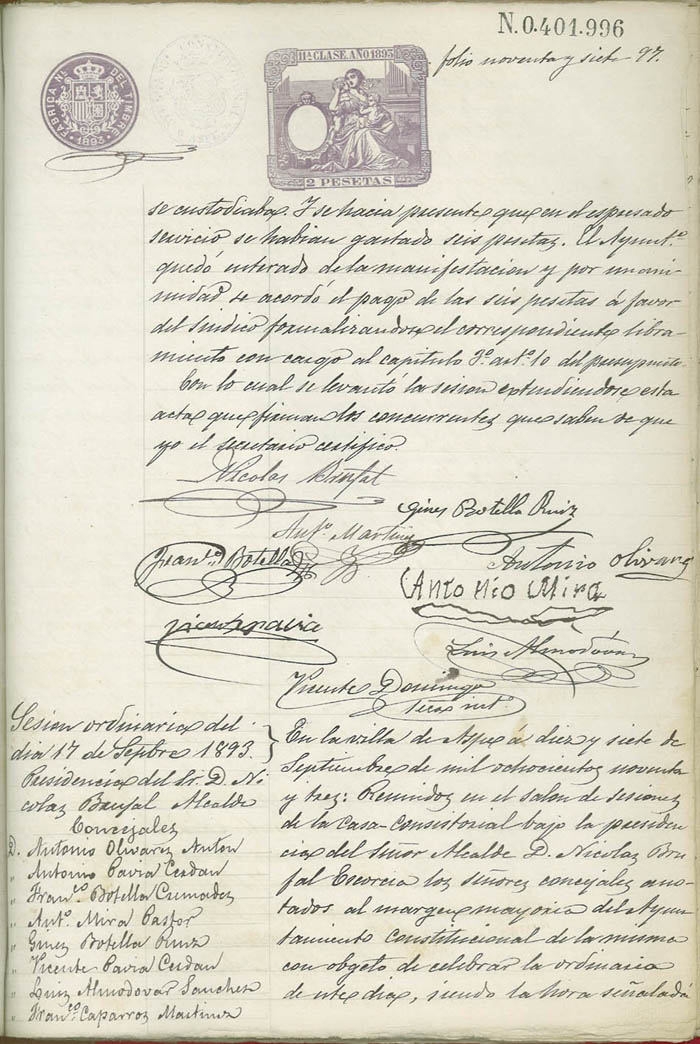 N.0.401.996
11ª CLASE. AÑO 1893
folio noventa y siete 97.
FABRICA Nᴸ DEL TIMBRE
1893
2 PESETAS
se custodiaba. Y se hacia presente que en el espresado
servicio se habian gastado seis pesetas. El Ayunt.º
quedó enterado de la manifestacion y por unani
midad se acordó el pago de las seis pesetas á favor
del Sindico formalizandose el correspondiente libra-
miento con cargo al capitulo 1º. artº. 10 del presupuesto.
Con lo cual se levantó la sesion estendiendose esta
acta que firman los concurrentes que saben de que
yo el secretario certifico.
Nicolas Brufal
Gines Botella Ruiz
Antº. Martinez
Franº. Botella
Antonio Olivares
Antonio Mira
Vicente Pavia
Luis Almodóvar
Vicente Domingo
Secrº. intº.
Sesion ordinaria del
dia 17 de Sepbre 1893.
Presidencia del Sr. D. Ni
colas Brufal Alcalde
Concejales
D. Antonio Olivares Anton
" Antonio Pavia Cerdan
" Franº. Botella Cremades
" Antº. Mira Pastor
" Gines Botella Ruiz
" Vicente Pavia Cerdan
" Luis Almodovar Sanchez
" Franº. Caparros Martinez
En la villa de Aspe a diez y siete de
Septiembre de mil ochocientos noventa
y tres: Reunidos en el salon de sesiones
de la Casa-Consistorial bajo la presiden
cia del Señor Alcalde D. Nicolas Bru
fal Escorcia los señores concejales ano-
tados al margen mayoria del Ayun-
tamiento constitucional de la misma
con obgeto de celebrar la ordinaria
de este dia, siendo la hora señalada